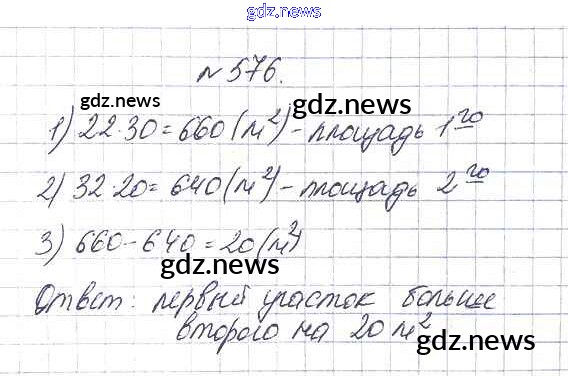 gdz.news
№576.
gdz.news
gdz.news
1) 22·30=660(м²)-площадь 1го
2) 32·20=640(м²)-площадь 2го
gdz.news
3) 660-640=20(м²)
gdz.news
Ответ: первый участок больше
второго на 20 м²
gdz.news